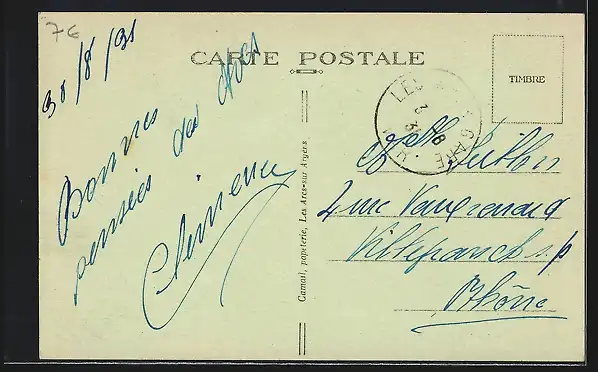 76
30/8/31
CARTE POSTALE
TIMBRE
Bonnes
pensées des Arcs
LES GARE
Camail, papeterie, Les Arcs-sur Argens
2 rue
Villefranche s/
Rhône